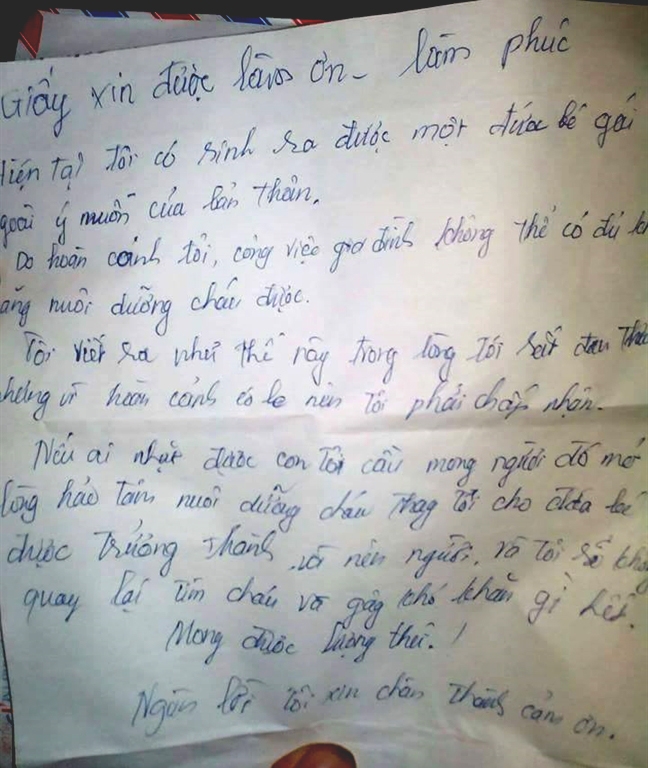 Giấy xin được làm ơn - làm phúc
Hiện tại tôi có sinh ra được một đứa bé gái
goài ý muốn của bản thân.
Do hoàn cảnh tôi, công việc gia đình không thể có đủ kh
ăng nuôi dưỡng cháu được.
Tôi viết ra như thế này trong lòng tôi rất đau
nhưng vì hoàn cảnh éo le nên tôi phải chấp nhận.
Nếu ai nhặt được con tôi cầu mong người đó mở
lòng hảo tâm nuôi dưỡng cháu thay tôi cho đứa bé
được trưởng thành và nên người. và tôi sẽ khô
quay lại tìm cháu và gây khó khăn gì hết.
Mong được lượng thứ. !
Ngàn lời tôi xin chân thành cảm ơn.